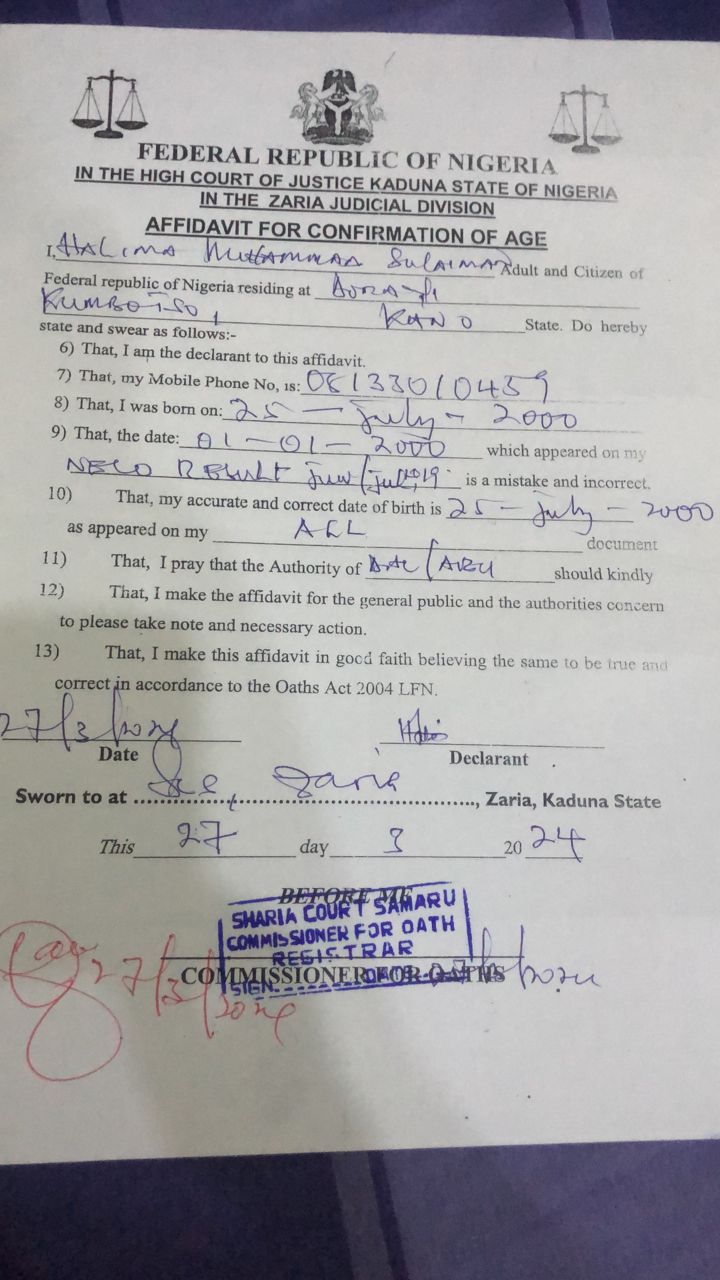 FEDERAL REPUBLIC OF NIGERIA
IN THE HIGH COURT OF JUSTICE KADUNA STATE OF NIGERIA
IN THE ZARIA JUDICIAL DIVISION
AFFIDAVIT FOR CONFIRMATION OF AGE
I, HALIMA MUHAMMAD SULAIMAN Adult and Citizen of
Federal republic of Nigeria residing at
KUMBOTSO, KANO State. Do hereby
state and swear as follows:-
6) That, I am the declarant to this affidavit.
7) That, my Mobile Phone No, is: 08133010459
8) That, I was born on: 25 - July - 2000
9) That, the date: 01-01-2000 which appeared on my
NECO RESULT Jun/Jul, 19 is a mistake and incorrect.
10) That, my accurate and correct date of birth is 25 - July - 2000
as appeared on my ALL document
11) That, I pray that the Authority of DAC/ABU should kindly
12) That, I make the affidavit for the general public and the authorities concern
to please take note and necessary action.
13) That, I make this affidavit in good faith believing the same to be true and
correct in accordance to the Oaths Act 2004 LFN.
27/3/2024
Date Declarant
Sworn to at Zaria, Zaria, Kaduna State
This 27 day 3 2024
BEFORE ME
SHARIA COURT SAMARU
COMMISSIONER FOR OATH
REGISTRAR
COMMISSIONER FOR OATHS
SIGN. DATE 27/3/2024
27/3/2024